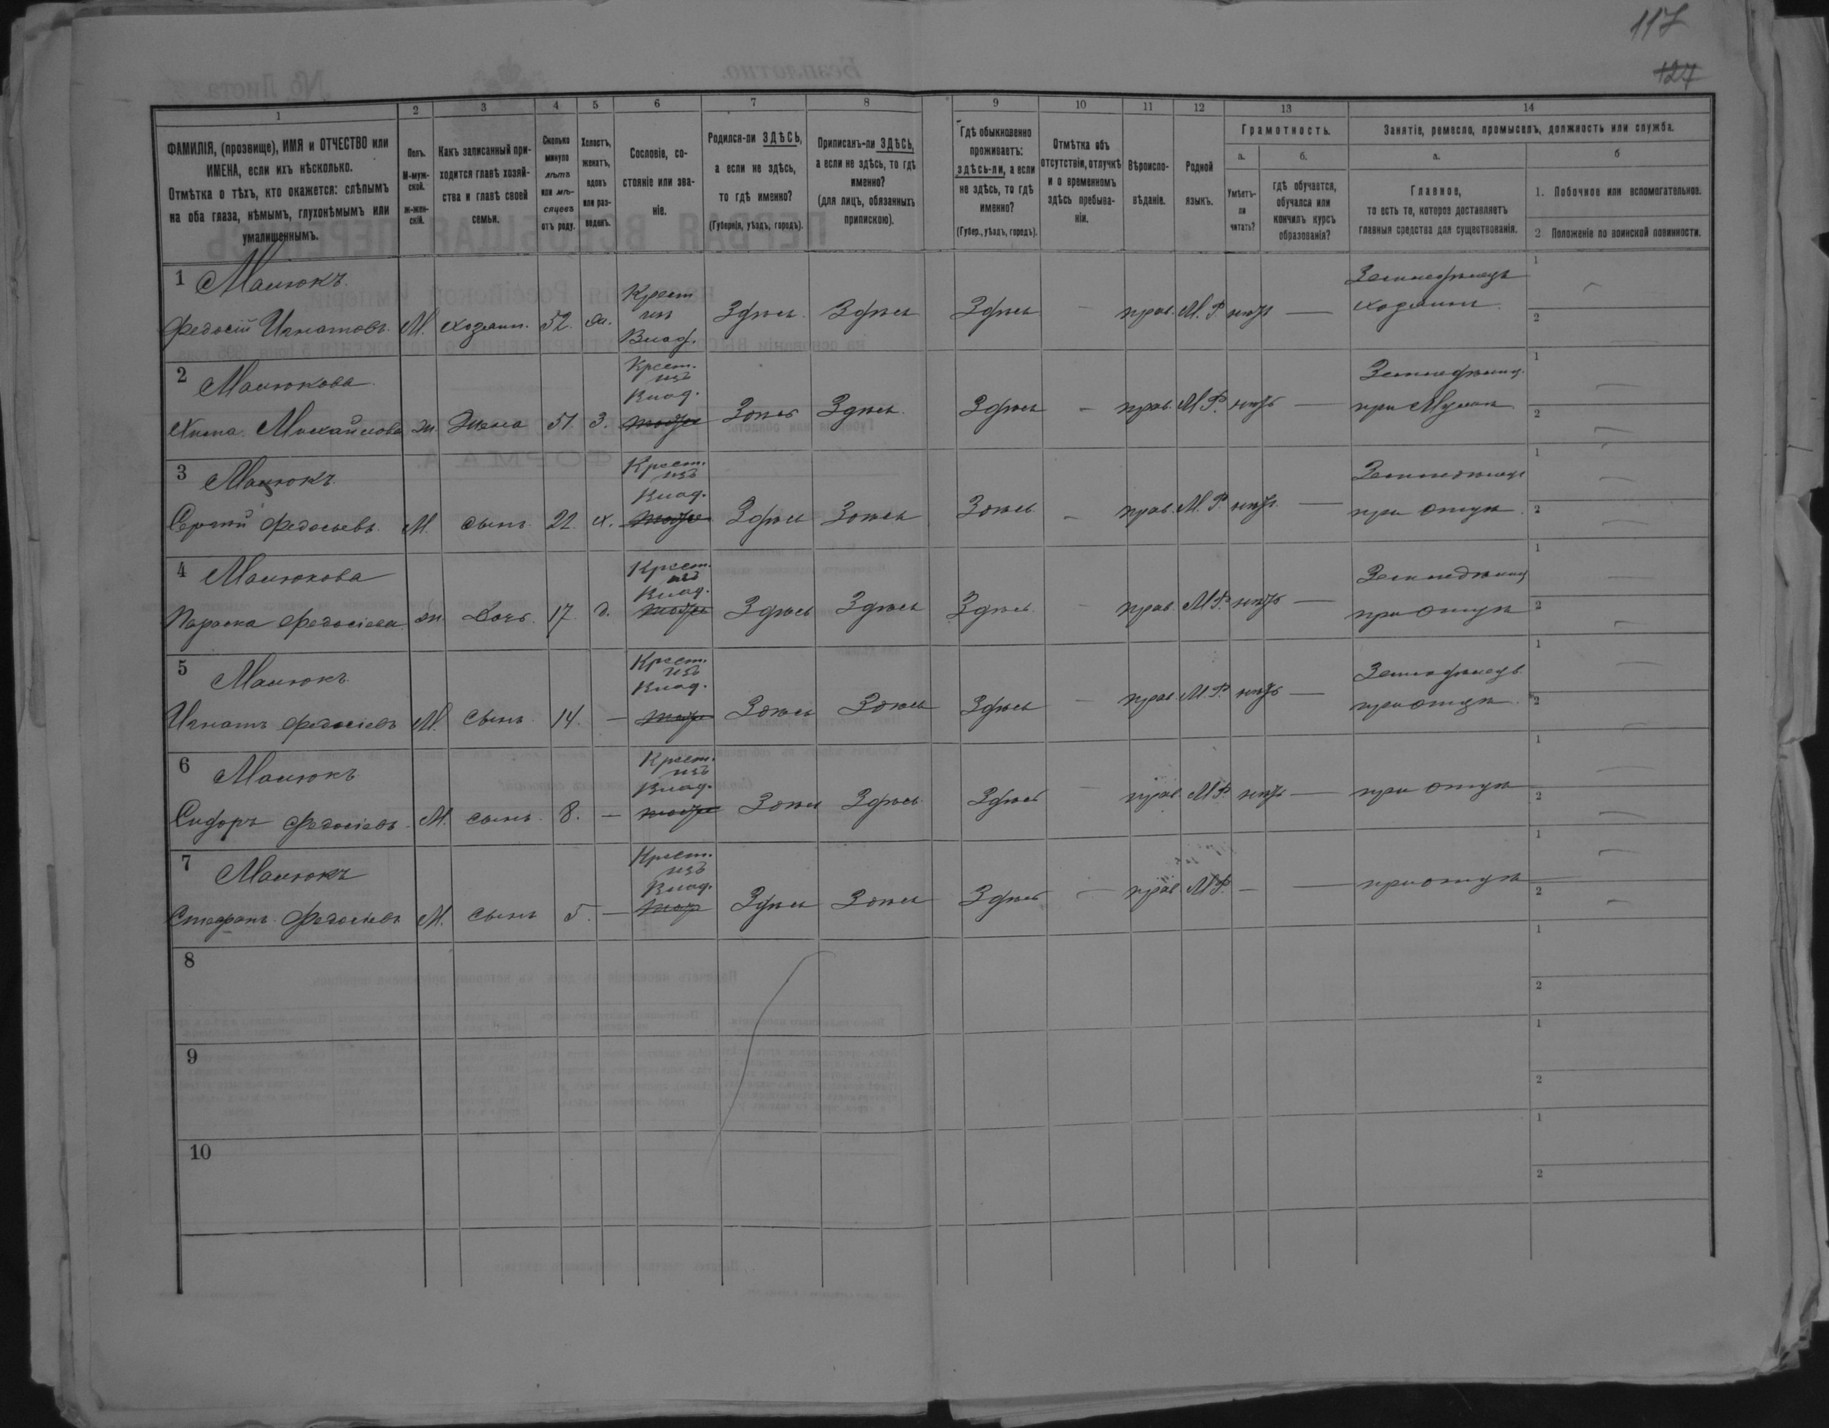 117
127
1
2
3
4
5
6
7
8
9
10
11
12
13
14
ФАМИЛІЯ, (прозвище), ИМЯ и ОТЧЕСТВО или
ИМЕНА, если ихъ нѣсколько.
Отмѣтка о тѣхъ, кто окажется: слѣпымъ
на оба глаза, нѣмымъ, глухонѣмымъ или
умалишеннымъ.
Полъ.
М-муж-
ской.
Ж-жен-
скій.
Какъ записанный при-
ходится главѣ хозяй-
ства и главѣ своей
семьи.
Сколько
минуло
лѣтъ
или мѣ-
сяцевъ
отъ роду.
Холостъ,
женатъ,
вдовъ
или раз-
веденъ.
Сословіе, со-
стояніе или зва-
ніе.
Родился-ли ЗДѢСЬ,
а если не здѣсь,
то гдѣ именно?
(Губернія, уѣздъ, городъ).
Приписанъ-ли ЗДѢСЬ,
а если не здѣсь, то гдѣ
именно?
(для лицъ, обязанныхъ
припискою).
Гдѣ обыкновенно
проживаетъ:
здѣсь-ли, а если
не здѣсь, то гдѣ
именно?
(Губер., уѣздъ, городъ).
Отмѣтка объ
отсутствіи, отлучкѣ
и о временномъ
здѣсь пребыва-
ніи.
Вѣроиспо-
вѣданіе.
Родной
языкъ.
Грамотность.
а.
Умѣетъ-
ли
читать?
б.
гдѣ обучается,
обучался или
кончилъ курсъ
образованія?
Занятіе, ремесло, промыселъ, должность или служба.
а.
Главное,
то есть то, которое доставляетъ
главныя средства для существованія.
б
1. Побочное или вспомогательное.
2 Положеніе по воинской повинности.
1 Малюкъ
Крест.
изъ
Влад.
Земледѣлецъ
хозяинъ
Федосій Игнатовъ М. хозяин. 52. ж. Здѣсь Здѣсь Здѣсь — прав. М. Р. нѣтъ —
2 Малюкова
Крест.
изъ
Влад.
Земледѣлец.
при Мужѣ
Михайлова ж. Жена 51. З. Здѣсь Здѣсь Здѣсь — прав. М. Р. нѣтъ —
3 Малюкъ
Крест.
изъ
Влад.
Земледѣлецъ
при отцѣ
Сергій Федосьевъ М. сынъ 22 х. Здѣсь Здѣсь Здѣсь — прав. М. Р. нѣтъ —
4 Малюкова
Крест.
изъ
Влад.
Земледѣлец
при отцѣ
Параска Федосіева ж. Дочь 17. д. Здѣсь Здѣсь Здѣсь — прав. М. Р. нѣтъ —
5 Малюкъ
Крест.
изъ
Влад.
Земледѣлецъ
при отцѣ
Игнатъ Федосіевъ М. сынъ 14. — Здѣсь Здѣсь Здѣсь — прав. М. Р. нѣтъ —
6 Малюкъ
Крест.
изъ
Влад.
Сидоръ Федосіевъ М. сынъ 8. — Здѣсь Здѣсь Здѣсь — прав. М. Р. нѣтъ — при отцѣ
7 Малюкъ
Крест.
изъ
Влад.
Стефанъ Федосіевъ М. сынъ 5. — Здѣсь Здѣсь Здѣсь — прав. М. Р. — — при отцѣ
8
9
10